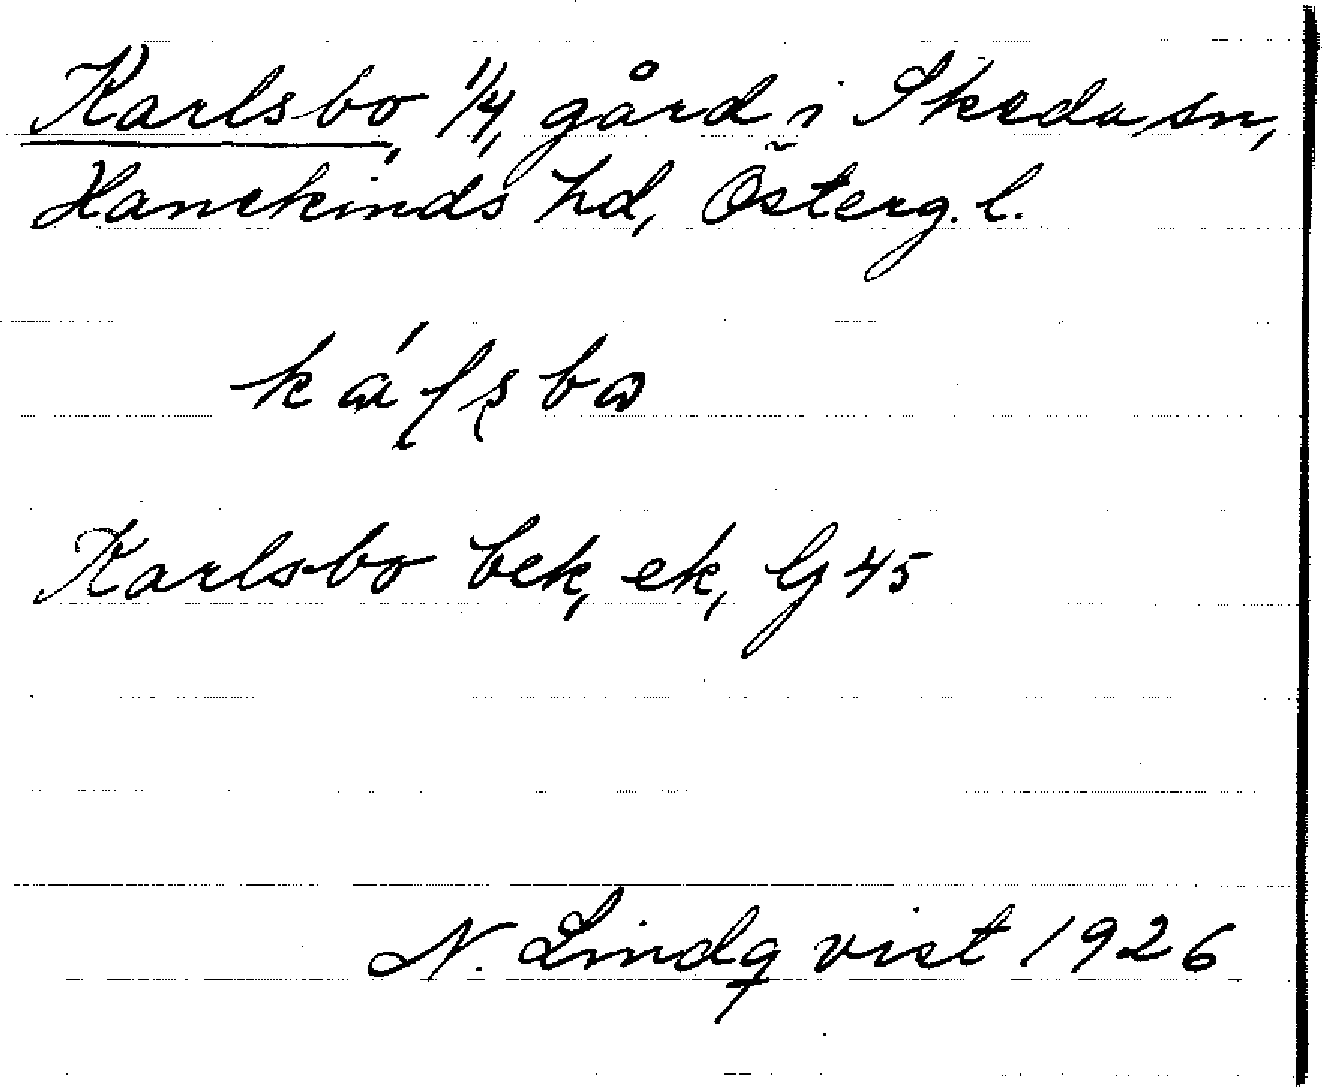 Karlsbo, 1/4, gård i Skeda sn,
Hanekinds hd, Österg. l.
Karlsbo bek, ek, G 45
N. Lindqvist 1926